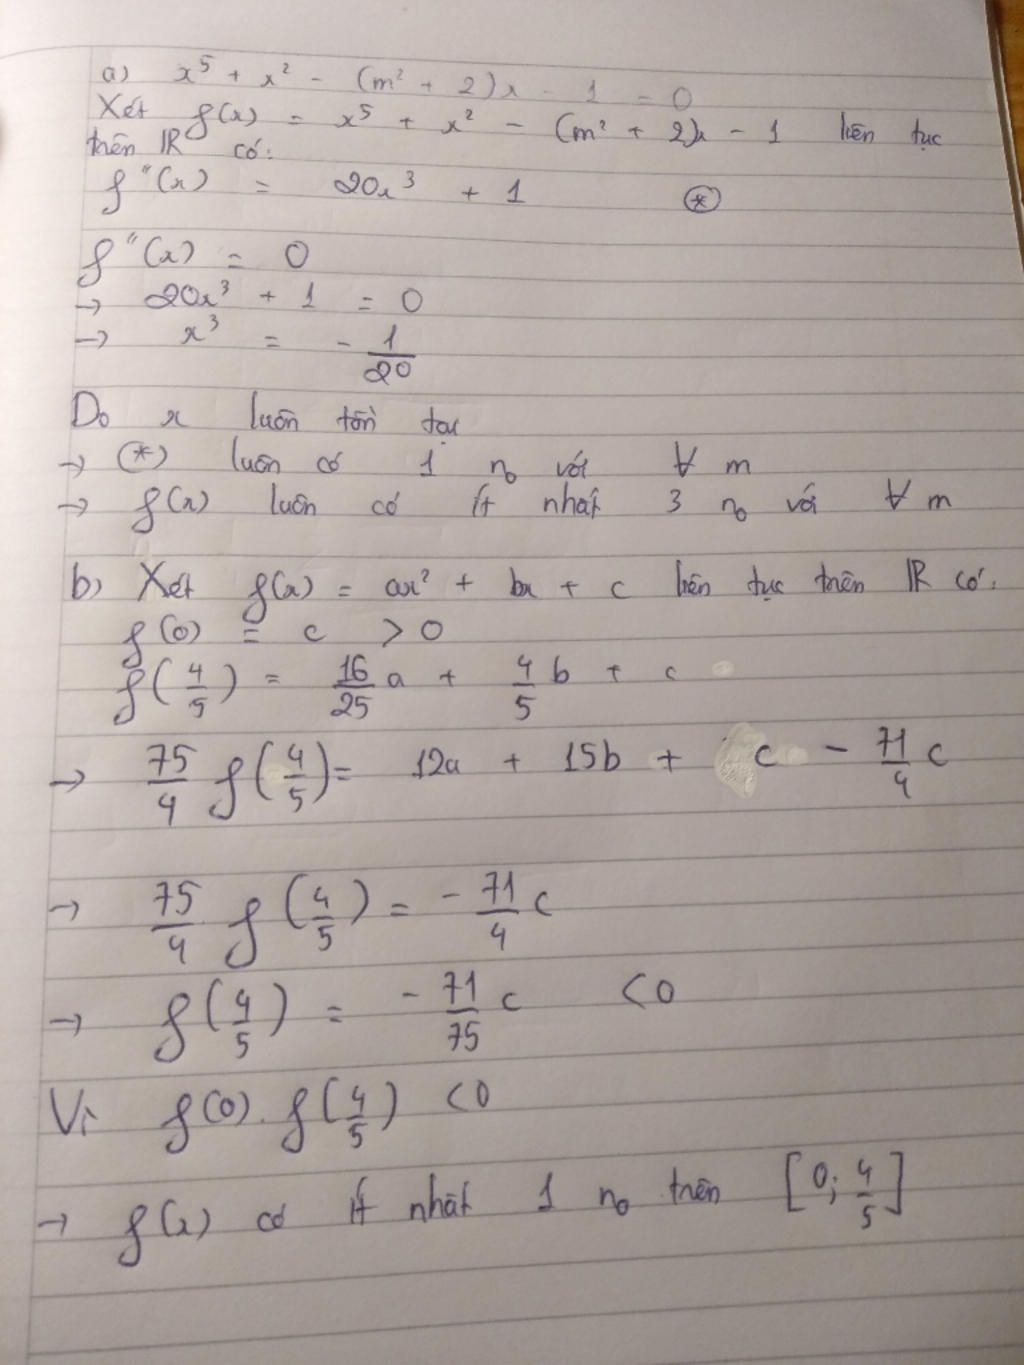 a) x⁵ + x² - (m² + 2)x - 1 = 0
Xét f(x) = x⁵ + x² - (m² + 2)x - 1 liên tục
trên ℝ có:
f''(x) = 20x³ + 1 (*)
f''(x) = 0
→ 20x³ + 1 = 0
→ x³ = - 1/20
Do x luôn tồn tại
→ (*) luôn có 1 n₀ với ∀ m
→ f(x) luôn có ít nhất 3 n₀ với ∀ m
b) Xét f(x) = ax² + bx + c liên tục trên ℝ có:
f(0) = c > 0
f(4/5) = 16/25 a + 4/5 b + c
→ 75/4 f(4/5) = 12a + 15b + c - 71/4 c
→ 75/4 f(4/5) = - 71/4 c
→ f(4/5) = - 71/75 c < 0
Vì f(0). f(4/5) < 0
→ f(x) có ít nhất 1 n₀ trên [0; 4/5]